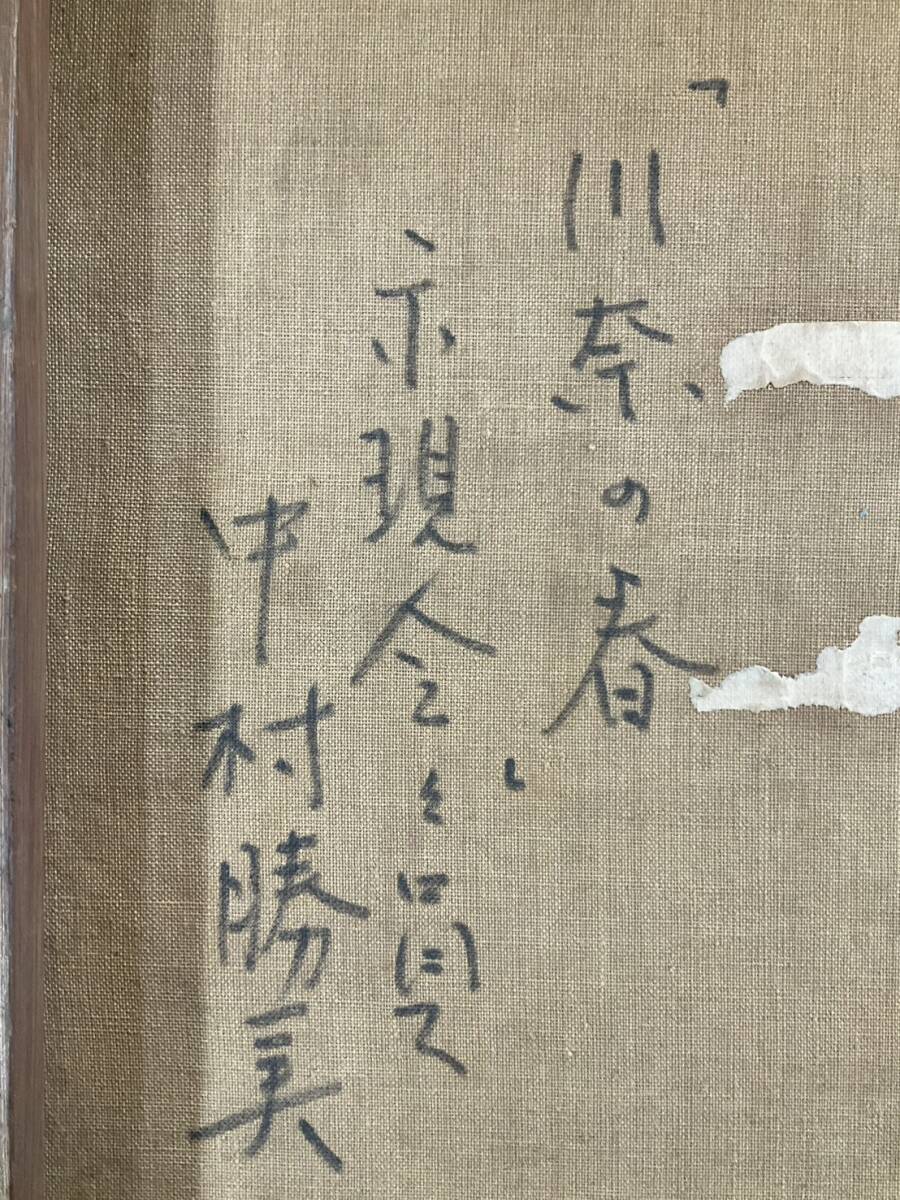 「川奈の春」
示現会々員
中村勝美